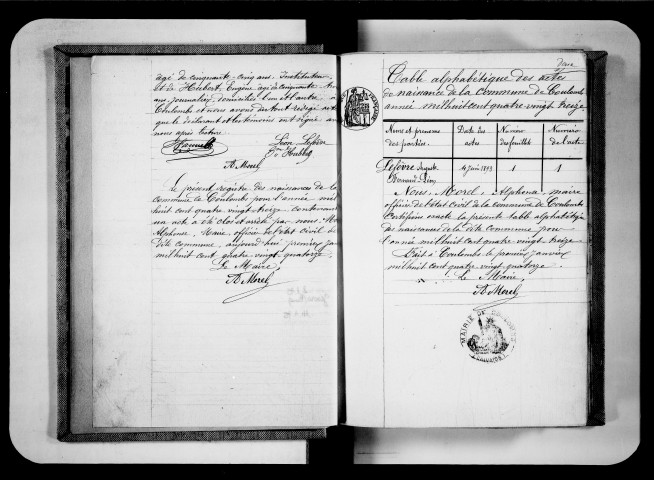 agé de cinquante cinq ans Instituteur
et de Hubert, Eugène, agé de cinquante
ans journalier, domiciliés l'un et l'autre à
Coulombs et nous avons du tout rédigé acte
que le déclarant et les témoins ont signé
nous après lecture.
Léon Lefèvre
E. Hubert
A Morel
Le présent registre des naissances de la
commune de Coulombs pour l'année mil
huit cent quatre vingt treize contenant
un acte a été clos et arrêté par nous, Morel
Alphonse, Maire officier de l'état civil de
dite commune, aujourd'hui premier
mil huit cent quatre vingt quatorze.
Le Maire,
A Morel
deux
Table alphabétique des actes
de naissance de la Commune de Coulombs
année mil huit cent quatre vingt treize
Noms et prénoms des parties. Date des actes Numéro des feuillets Numéro de l'acte
Lefèvre Auguste 4 Juin 1893 1 1
Léon
Nous, Morel, Alphonse, maire
officier de l'état civil de la commune de Coulombs
certifions exacte la présente table alphabétique
des naissances de la dite commune pour
l'année mil huit cent quatre vingt treize
Fait à Coulombs le premier janvier
mil huit cent quatre vingt quatorze.
Le Maire,
A Morel
MAIRIE DE COULOMBS
(CALVADOS)